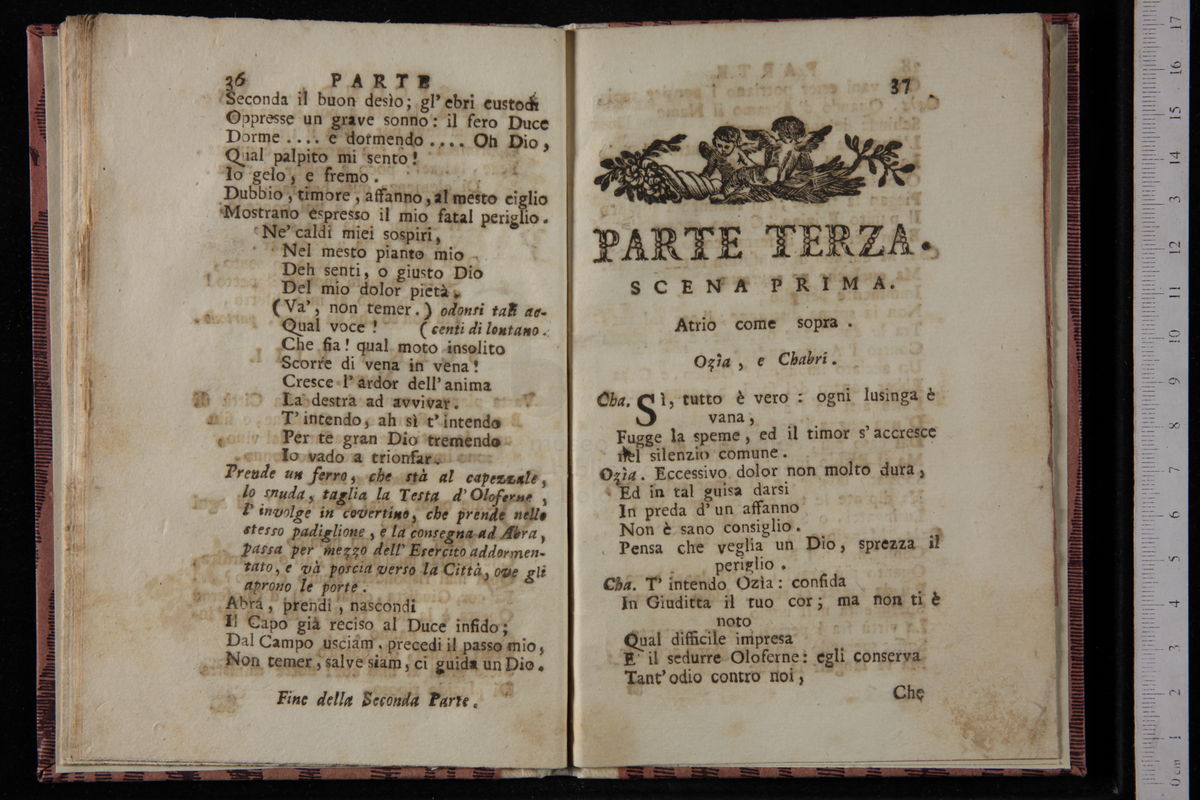 36 PARTE
Seconda il buon desìo; gl' ebri custodi
Oppresse un grave sonno: il fero Duce
Dorme .... e dormendo .... Oh Dio,
Qual palpito mi sento!
Io gelo, e fremo.
Dubbio, timore, affanno, al mesto ciglio
Mostrano espresso il mio fatal periglio.
Ne' caldi miei sospiri,
Nel mesto pianto mio
Deh senti, o giusto Dio
Del mio dolor pietà.
(Va', non temer.) odonsi tali ac-
Qual voce! (centi di lontano.
Che fia! qual moto insolito
Scorre di vena in vena!
Cresce l' ardor dell' anima
La destra ad avvivar.
T' intendo, ah sì t' intendo
Per te gran Dio tremendo
Io vado a trionfar.
Prende un ferro, che stà al capezzale,
lo snuda, taglia la Testa d' Oloferne,
l' involge in covertino, che prende nello
stesso padiglione, e la consegna ad Abra,
passa per mezzo dell' Esercito addormen-
tato, e và poscia verso la Città, ove gli
aprono le porte.
Abra, prendi, nascondi
Il Capo già reciso al Duce infido;
Dal Campo usciam, precedi il passo mio,
Non temer, salve siam, ci guida un Dio.
Fine della Seconda Parte.
37
PARTE TERZA.
SCENA PRIMA.
Atrio come sopra.
Ozìa, e Chabri.
Cha. Sì, tutto è vero: ogni lusinga è
vana,
Fugge la speme, ed il timor s' accresce
nel silenzio comune.
Ozìa. Eccessivo dolor non molto dura,
Ed in tal guisa darsi
In preda d' un affanno
Non è sano consiglio.
Pensa che veglia un Dio, sprezza il
periglio.
Cha. T' intendo Ozìa: confida
In Giuditta il tuo cor; ma non ti è
noto
Qual difficile impresa
E' il sedurre Oloferne: egli conserva
Tant' odio contro noi,
Che
17
16
15
14
13
12
11
10
9
8
7
6
5
4
3
2
1
0 cm